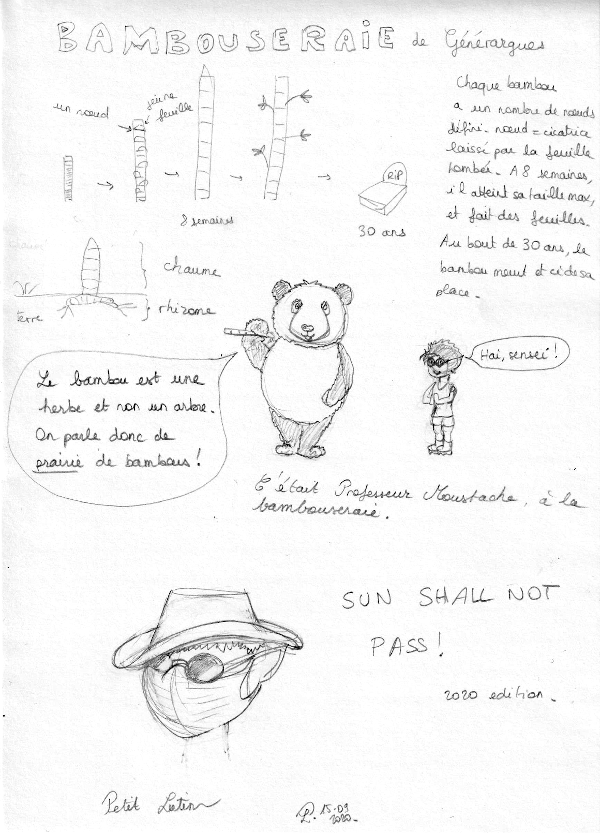 BAMBOUSERAIE de Générargues
un nœud
jeune
feuille
8 semaines
RIP
30 ans
Chaque bambou
a un nombre de nœuds
défini. nœud = cicatrice
laissé par la feuille
tombée. A 8 semaines,
il atteint sa taille max,
et fait des feuilles.
Au bout de 30 ans, le
bambou meurt et cède sa
place.
chaume
terre
rhizome
Le bambou est une
herbe et non un arbre.
On parle donc de
prairie de bambous !
Hai, sensei !
C'était Professeur Moustache, à la
bambouseraie.
SUN SHALL NOT
PASS !
2020 edition.
Petit Lutin
PL. 15.09
2020.